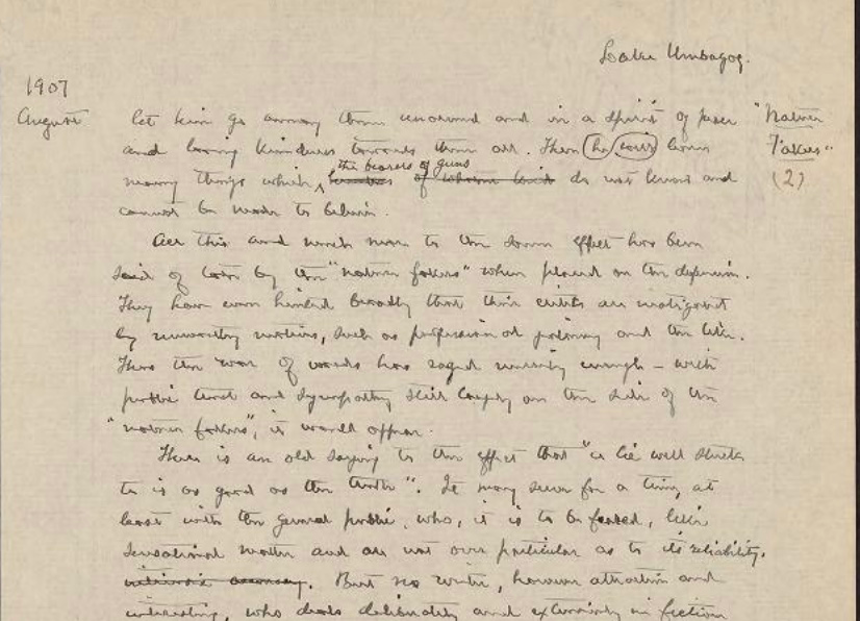 Lake Umbagog.
1907
August
let him go among them unarmed and in a spirit of pure "Nature
and loving kindness towards them all. Then he will learn Fakes"
many things which the bearers of guns hunters of whom do not know and (2)
cannot be made to believe.
All this and much more to the same effect has been
said of late by the "nature fakers" when placed on the defensive.
They have even hinted broadly that their critics are instigated
by unworthy motives, such as professional jealousy and the like.
Thus the war of words has raged merrily enough – with
public trust and sympathy still largely on the side of the
"nature fakers", it would appear.
There is an old saying to the effect that "a lie well stuck
to is as good as the truth". It may serve for a time, at
least with the general public, who, it is to be feared, like
sensational matter and are not over particular as to its reliability.
accuracy. But no writer, however attractive and
interesting, who deals deliberately and extensively in fiction